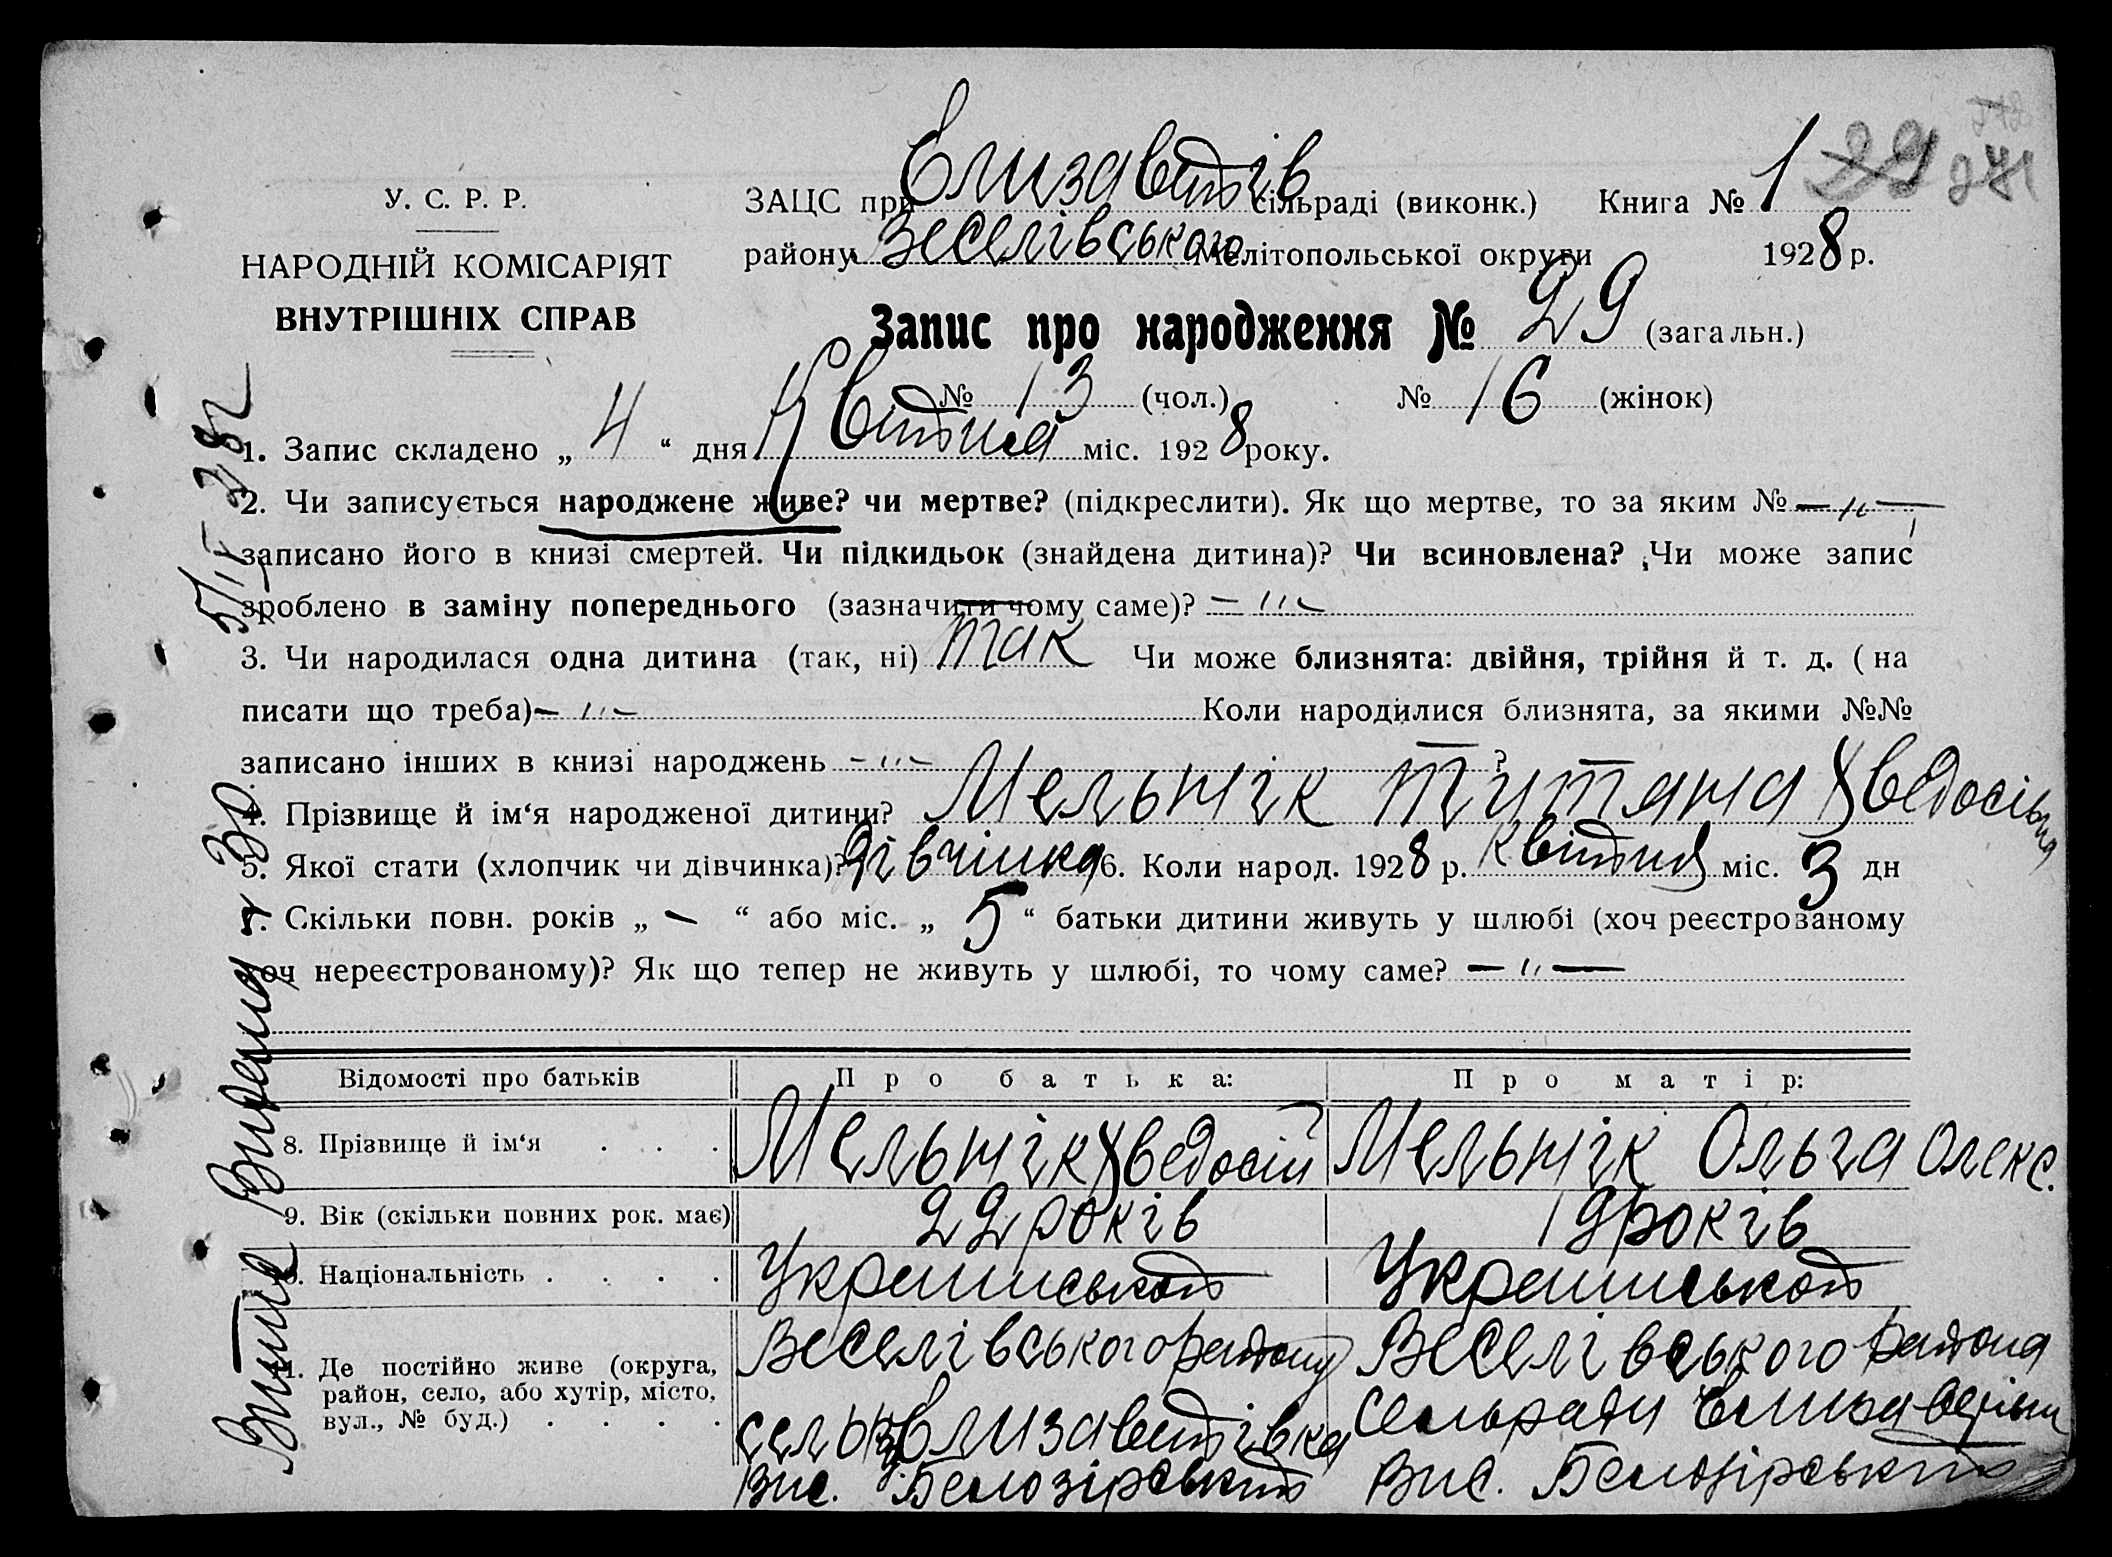 У. С. Р. Р.
НАРОДНІЙ КОМІСАРІЯТ
ВНУТРІШНІХ СПРАВ
ЗАЦС при Єлизаветів сільраді (виконк.) Книга № 1 29 241
району Веселівського Мелітопольської округи 1928 р.
Запис про народження № 29 (загальн.)
№ 13 (чол.) № 16 (жінок)
1. Запис складено „ 4 “ дня Квітня міс. 1928 року.
2. Чи записується народжене живе? чи мертве? (підкреслити). Як що мертве, то за яким № — „ —
записано його в книзі смертей. Чи підкидьок (знайдена дитина)? Чи всиновлена? Чи може запис
зроблено в заміну попереднього (зазначити чому саме)? — „ —
3. Чи народилася одна дитина (так, ні) так Чи може близнята: двійня, трійня й т. д. (на
писати що треба) — „ — Коли народилися близнята, за якими №№
записано інших в книзі народжень — „ — ?
4. Прізвище й ім‘я народженої дитини? Мельнік Титяна Хведосіівна
5. Якої стати (хлопчик чи дівчинка)? Дівчінка 6. Коли народ. 1928 р. квітня міс. 3 дн
7. Скільки повн. років „ — “ або міс. „ 5 “ батьки дитини живуть у шлюбі (хоч реєстрованому
хоч нереєстрованому)? Як що тепер не живуть у шлюбі, то чому саме? — „ —
Відомості про батьків Про батька: Про матір:
8. Прізвище й ім‘я . . . Мельнік Хведосій Мельнік Ольга Олекс.
9. Вік (скільки повних рок. має) 22 років 19 років
10. Національність . . . . Украиньської Украиньської
11. Де постійно живе (округа,
район, село, або хутір, місто,
вул., № буд.) . . . .
Веселівського району
сельр Єлизаветівка
Вис. Белозірський
Веселівського района
Сельради Єлизаветівки
Вис. Белозірський